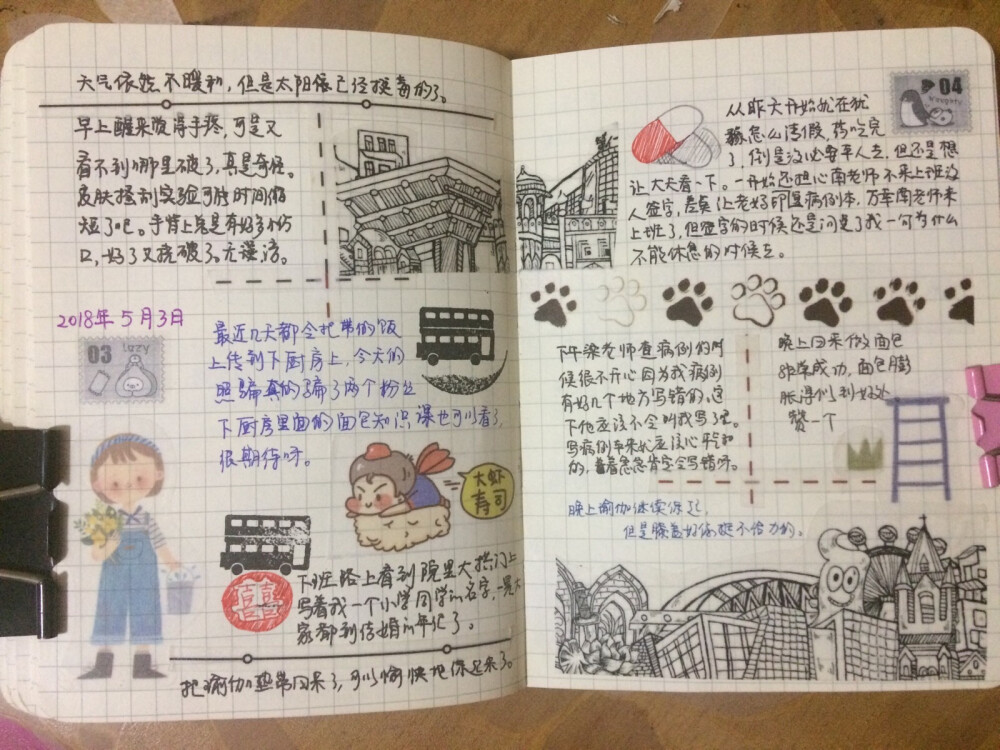 天气依然不暖和，但是太阳依已经挺毒的了。
早上醒来觉得手疼，可是又
看不到哪里破了，真是奇怪。
皮肤搔刮实验可能时间俯
短了吧。手背上总是有好多小伤
口，好了又挠破了。亢谨济。
2018年5月3日
03 lazy
最近几天都会把带的饭
上传到下厨房上，今天的
照骗真的骗了两个粉丝
下厨房里面的面包知识课也可以看了，
很期待呀。
大虾
寿司
囍
下班路上看到院里大拱门上
写着我一个小学同学的名字，一晃大
家都到结婚的年纪了。
把瑜伽垫带回来了，可以愉快地练起来了。
04
从昨天开始就在犹
豫怎么请假，药吃完
了，倒是没必要本人去，但还是想
让大夫看一下。一开始还担心南老师不来上班没
人签字，差点让老好印量病例本，万幸南老师来
上班了，但签字的时候还是问更了我一句为什么
不能休息的时候去。
下午梁老师查病例的时
候很不开心因为我病例
有好几个地方写错的，这
下他应该不会叫我写了吧。
写病例本来就应该心平气和
的，着着急急肯定会写错呀。
晚上回来做面包
非常成功，面包膨
胀得恰到好处
赞一个
晚上瑜伽继续练起，
但是膝盖好像挺不给力的。